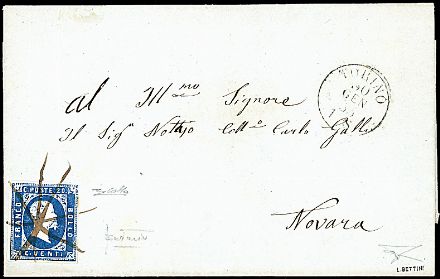 TORINO
20
GEN
al Ill.mo Signore
Il Sigr Notajo Coll.o Carlo Galli
C. POSTE 20
FRANCO
BOLLO
C. VENTI
Novara
L. BETTINI